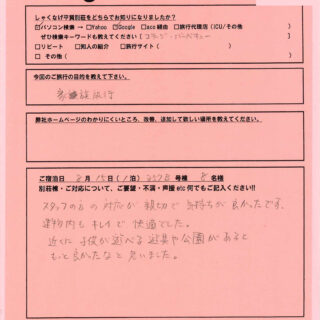 しゃくなげ平貸別荘をどちらでお知りになりましたか?
☑パソコン検索 → □Yahoo ☑Google □aco経由 □旅行代理店 (JCU/その他 )
ぜひ検索キーワードも教えてください [コテージ・バーベキュー ]
□リピート □知人の紹介 □旅行サイト( )
□ その他( )
今回のご旅行の目的を教えて下さい。
家族旅行
弊社ホームページのわかりにくいところ、改善、追加して欲しい場所を教えてください。
ご宿泊日 2月15日(1泊) 号棟 8名様
別荘棟・ご対応について、ご要望・不満・声援etc何でもご記入ください!!
スタッフの方の対応が親切で気持ちが良かったです。
建物内もキレイで快適でした。
近くに子供が遊べる遊具や公園があると
もっと良かったなと思いました。